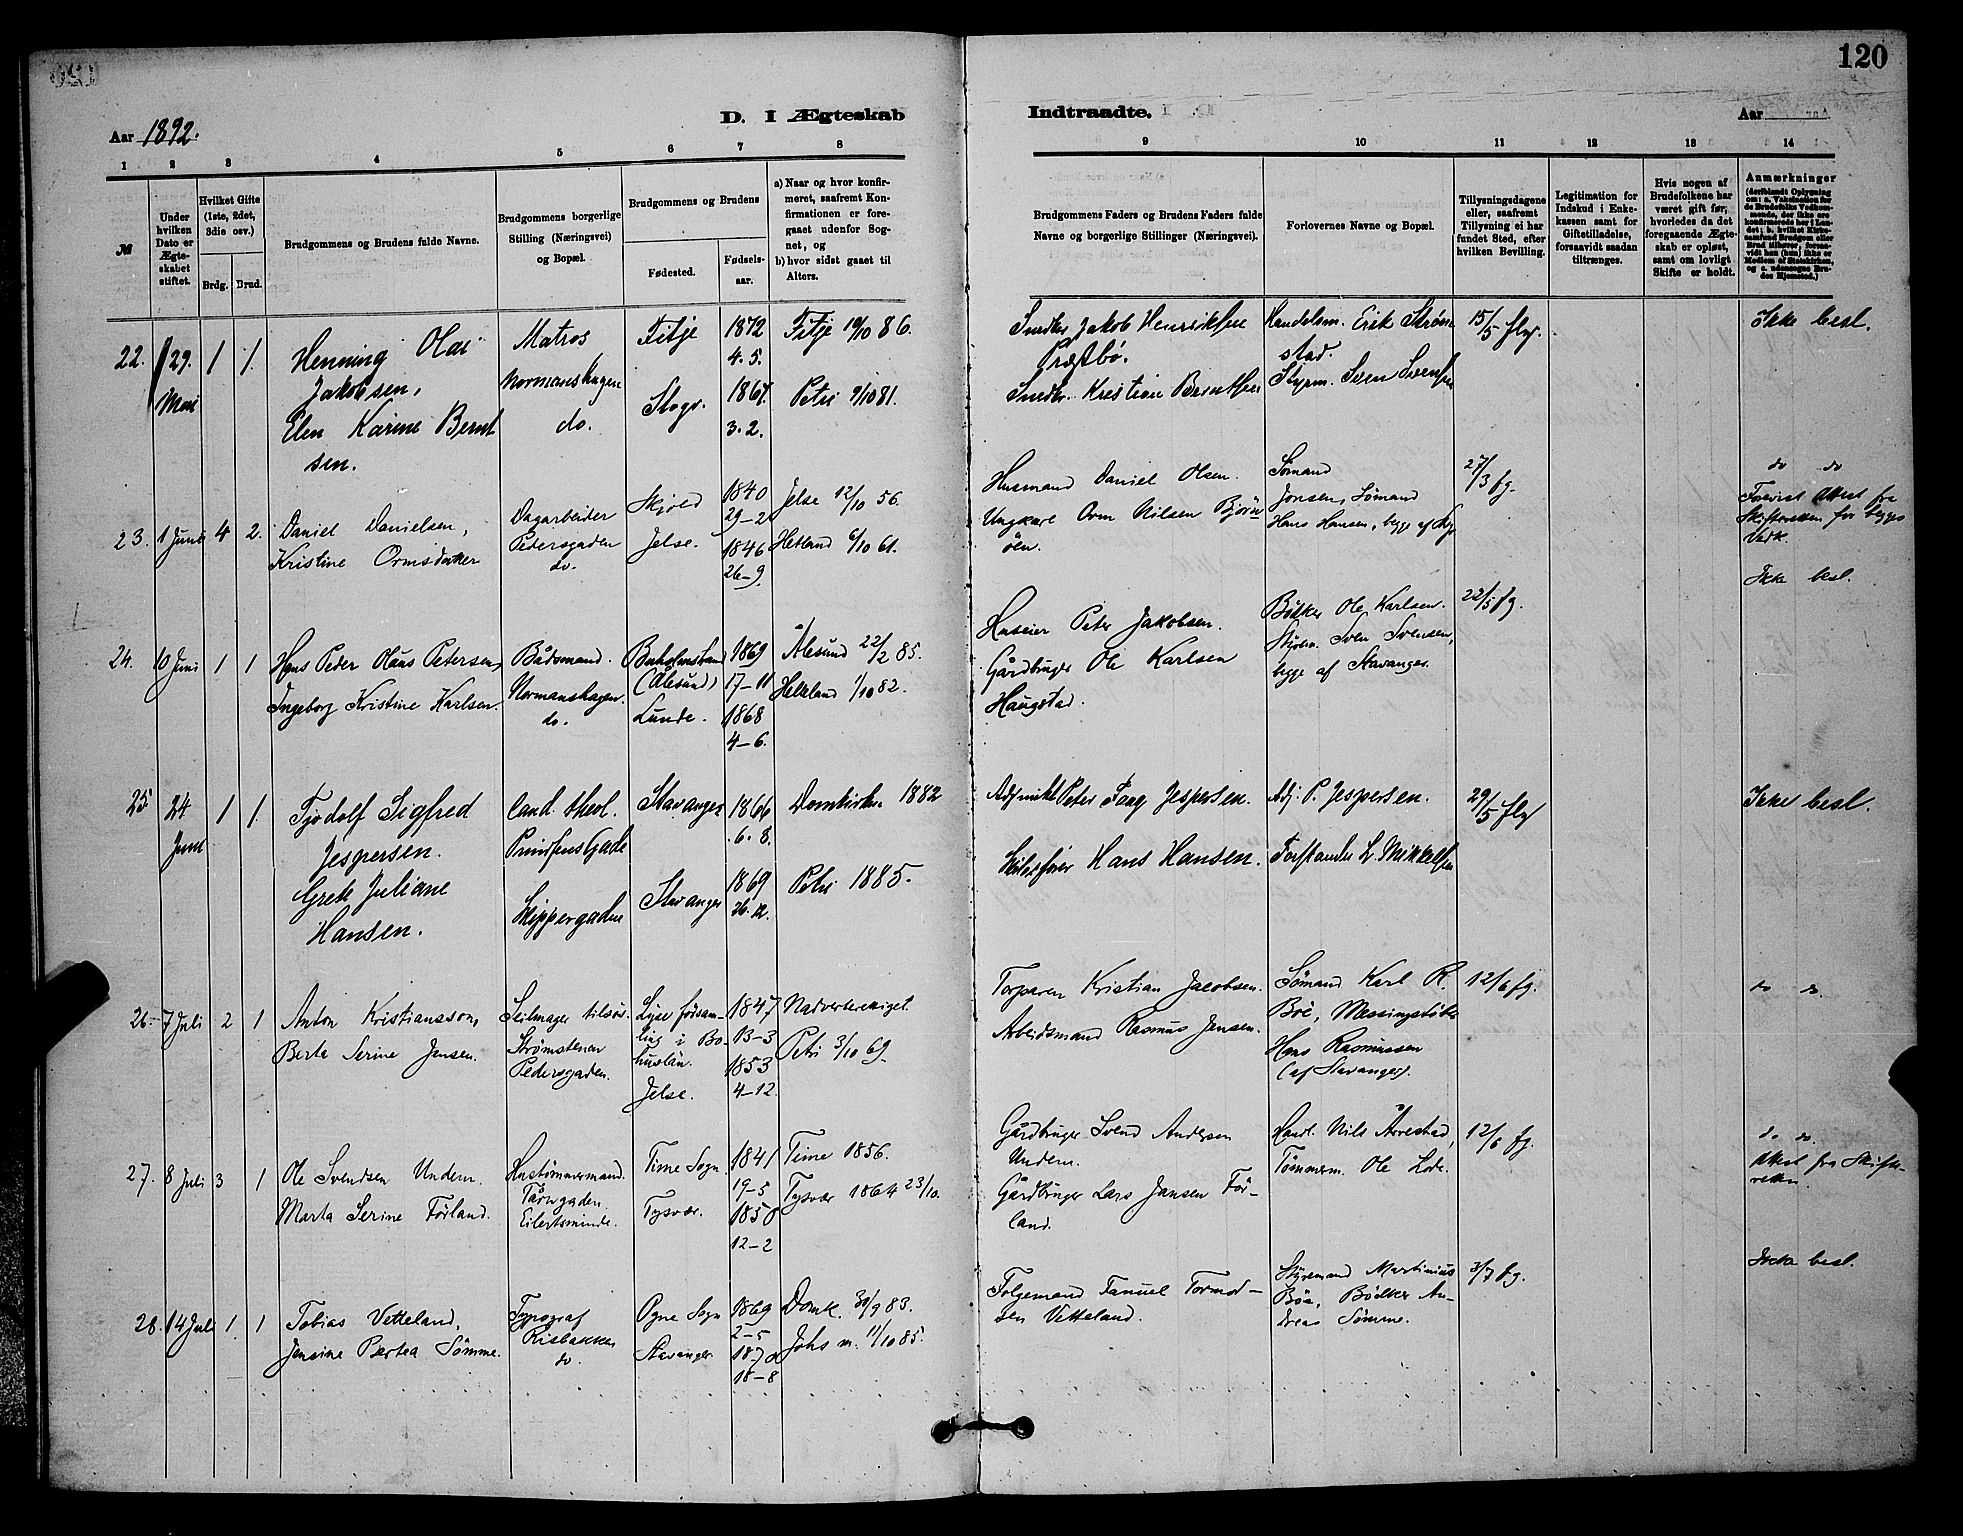 120
D. I Ægteskab Indtraadte.
Aar 1892. Aar
1 2 3 4 5 6 7 8 9 10 11 12 13 14
№
Under hvilken Dato er Ægteskabet stiftet.
Hvilket Gifte (1ste, 2det, 3die osv.)
Brdg. Brud.
Brudgommens og Brudens fulde Navne.
Brudgommens borgerlige Stilling (Næringsvei) og Bopæl.
Brudgommens og Brudens
Fødested.
Fødselsaar.
a) Naar og hvor konfirmeret, saafremt Konfirmationen er foregaaet udenfor Sognet, og
b) hvor sidst gaaet til Alters.
Brudgommens Faders og Brudens Faders fulde Navne og borgerlige Stillinger (Næringsvei).
Forlovernes Navne og Bopæl.
Tillysningsdagene eller, saafremt Tillysning ei har fundet Sted, efter hvilken Bevilling.
Legitimation for Indskud i Enkekassen samt for Giftetilladelse, forsaavidt saadan tiltrænges.
Hvis nogen af Brudefolkene har været gift før, hvorledes da det foregaaende Ægteskab er opløst, samt om lovligt Skifte er holdt.
Anmærkninger
22. 29. Mai 1 1.
Henning Olai
Jakobsen,
Elen Karine Bernt
sen.
Matros
Normanshagen
do.
Fitje
Stavgr.
1872
4.5.
1867.
3.2.
Fitje 19/10 86.
Petri 9/10 81.
Snedker Jakob Henriksen
Præstbø.
Snedkr. Kristian Berntsen
Handelsm. Erik Strøm
stad.
Styrm. Sven Svensen
15/5 flg.
Ikke besl.
23. 1 Juni 4 2.
Daniel Danielsen,
Kristine Ormsdatter
Dagarbeider
Pedersgaden
do.
Skjold
Jelse.
1840
29-2
1846
26-9
Jelse 12/10 56.
Hetland 6/10 61.
Husmand Daniel Olsen.
Ungkarl Orm Nilsen Bjørn
øen.
Sømand
Jonsen, Sømand
Hans Hansen, begge af
27/3 fg.
do do
Forevist Attest fra
Skifteretten for begges
Vedk.
24. 10 Juni 1 1
Hans Peder Olaus Petersen,
Ingeborg Kristine Karlsen.
Bådsmand.
Normanshagen.
do.
Buholmstrand
(Ålesund)
Lunde.
1869
17-11
1868
4-6.
Ålesund 22/2 85.
Helleland 1/10 82.
Huseier Peter Jakobsen.
Gårdbruger Ole Karlsen
Haugstad.
Bødker Ole Karlsen.
Styrm. Sven Svensen,
begge af Stavanger.
22/5 fg.
Ikke besl.
25. 24 Juni 1 1.
Tjodolf Sigfred
Jespersen.
Grete Juliane
Hansen.
Cand. theol.
Prinsensgade
Skippergaden
Stavanger
Stavanger
1866
6.8.
1869
26.12.
Domkirken 1882
Petri 1885.
Adjunkt Peter Fang Jespersen.
Skibsfører Hans Hansen.
Adj. P. Jespersen.
Forstander L. Mikkelsen
29/5 flg
Ikke besl.
26. 7 Juli 2 1
Anton Kristiansson,
Berte Serine Jensen.
Seilmager tilsøs.
Strømstenen
Pedersgaden.
Lyse försam-
ling i Bo-
huslän.
Jelse.
1847
13-3
1853
4-12
Nadverberettiget.
Petri 3/10 69.
Torparen Kristian Jacobsen.
Arbeidsmand Rasmus Jensen.
Sømand Karl R.
Böe, Messingstøber
Hans Rasmussen
(af Stavanger).
12/6 fg.
do do.
27. 8 Juli 3 1
Ole Svendsen Undem.
Marta Serine Førland.
Hustømmermand.
Tårngaden
Eilertsminde.
Time Sogn
Tysvær.
1841
19-5
1850
12-2
Time 1856.
Tysvær 1864 23/10.
Gårdbruger Svend Andersen
Undem.
Gårdbruger Lars Jansen Før-
land.
Handl. Nils Årrestad,
Tømmerm. Ole Lode.
12/6 fg.
do do.
Attest fra Skifte-
retten.
28. 14 Juli 1. 1
Tobias Vetteland,
Jensine Bertea Sömme.
Typograf
Risbakken
do
Ogne Sogn
Stavanger
1869
2-5
1870
18-8
Domk. 30/9 83.
Johs m. 11/10 85.
Folgemand Tanuel Tormod-
sen Vetteland.
Styrmand Martinius
Böe, Bödker An-
dreas Sömme.
3/7 fg.
Ikke besl.